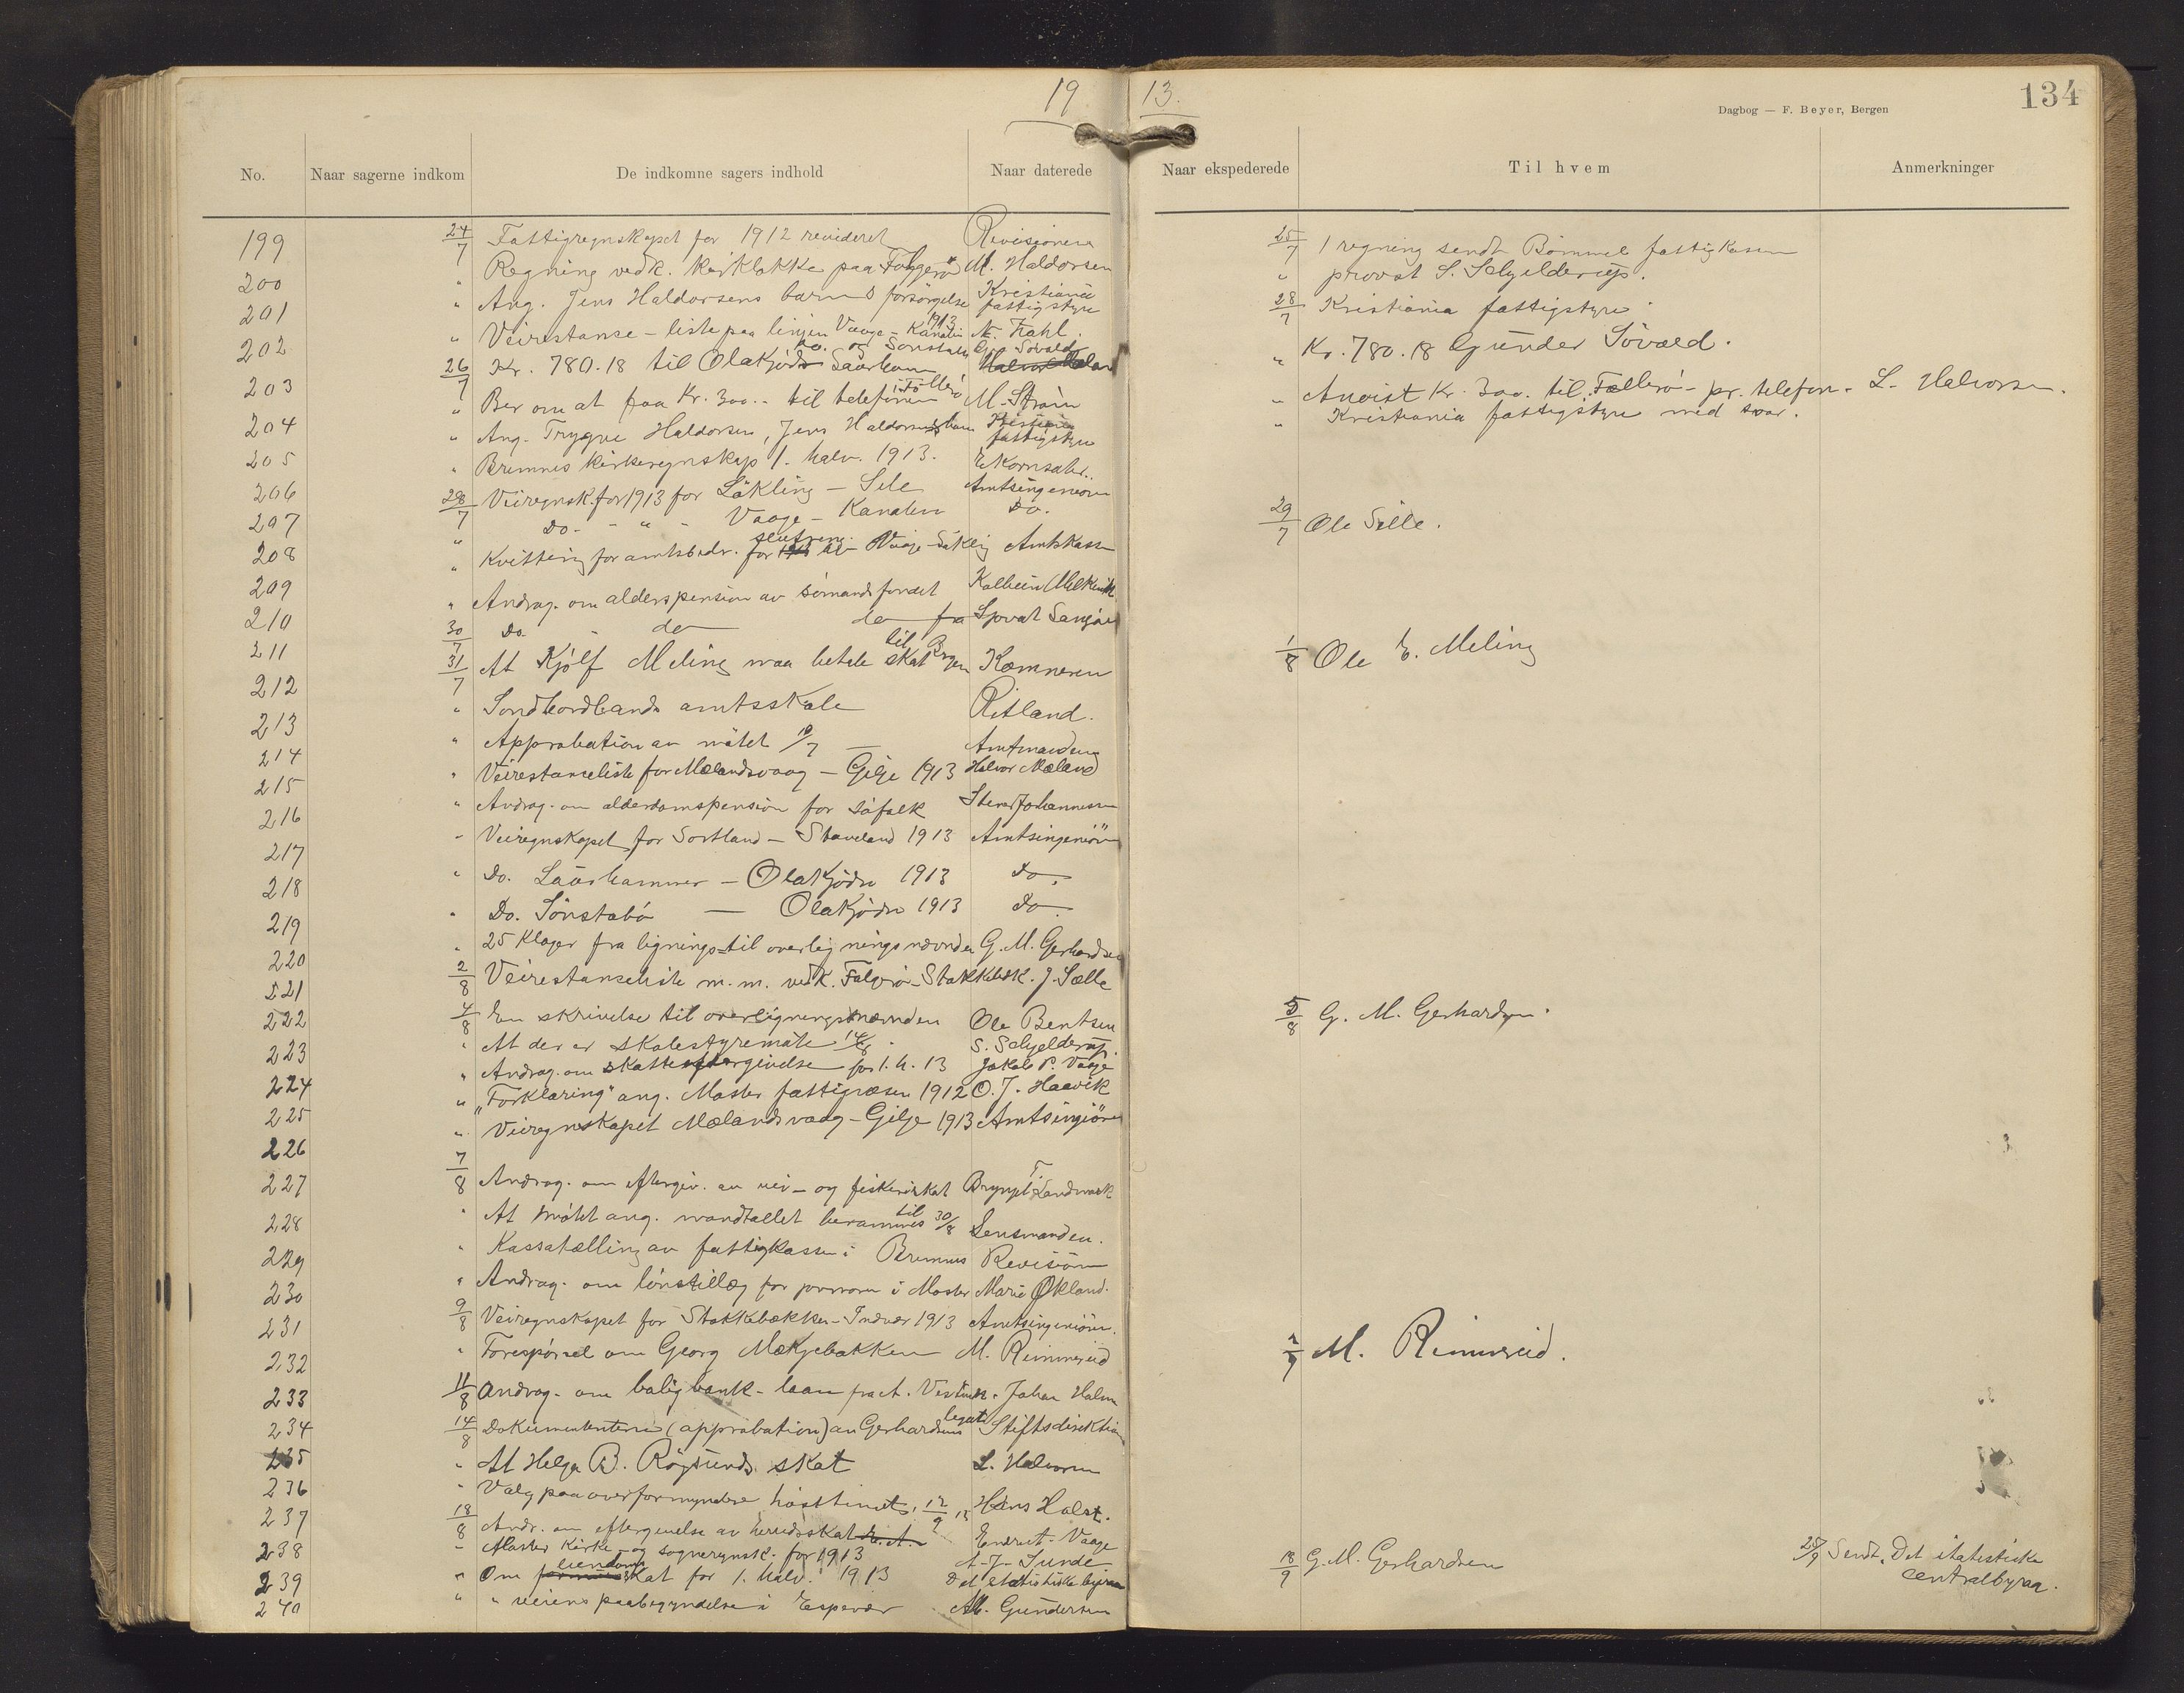 19 13.
Dagbog — F. Beyer, Bergen
134
No. Naar sagerne indkom De indkomne sagers indhold Naar daterede Naar ekspederede Til hvem Anmerkninger
199 24/7 Fattigregnskapet for 1912 revideret Revisionen 25/7 1 regning sendt Bömmel fattigkassen
200 " Regning vedk. kirklokke paa M. Haldorsen " provst S. Schjelderup.
201 " Ang. Jens Haldorsens barns forsörgelse Kristiania fattigstyre 28/7 Kristiania fattigstyre
202 " Veirestanse-liste paa linjen Vaage - Kanalen 1913 N. Trahl.
203 26/7 Kr. 780.18 til Olakjödn Laurhammer og Sönstabö Gu. Sövald Halvor Mæland " Kr. 780.18 Gunder Sövald.
204 " Ber om at faa Kr. 300.- til telefonen M. Ström " Anvist Kr. 300. til - pr. telefon - L. Halvorsen.
205 " Ang. Trygve Haldorsen, Jens Haldorsens barn Kristiania fattigstyre " Kristiania fattigstyre med svar.
206 " Bremnes kirkeregnskap 1. halv. 1913. E. Kornsæter.
207 28/7 Veiregnsk. for 1913 for Läkling - Sele Amtsingeniören 29/7 Ole Sille.
208 " Do. - " - Vaage - Kanalen Do.
209 " Kvittering for amtsbidr. for Vaage - Läklig Amtskassen
210 " Andrag. om alderspension av sömandsfondet Kolbein Melkevik
211 30/7 Do - do do fra Sjovat
212 31/7 At Kjölf Meling maa betale skat til Bergen Kæmneren 1/8 Ole E. Meling
213 " Söndhordlands amtsskole Ritland.
214 " Approbation av mötet 19/7 — Amtmanden
215 " Veirestanseliste for Mælandsvaag - Gilje 1913 Halvor Mæland
216 " Andrag. om alderdomspension for söfolk Johannesen
217 " Veiregnskapet for Sortland - Staveland 1913 Amtsingeniören
218 " Do. Laurhammer - Olakjödn 1913 do.
219 " Do. Sönstabö — Olakjödn 1913 do
220 " 25 klager fra lignings- til overligningsnævnden G. M. Gerhardsen
221 2/8 Veirestanseliste m. m. vedk. - Stakkebæk. J. Sælle
222 4/8 En skrivelse til overligningsnævnden Ole Bentsen 5/8 G. M. Gerhardsen.
223 " At der er skolestyremöte 14/8 . S. Schjelderup.
224 " Andrag. om skatteeftergivelse for 1. h. 13 Jakob P. Vaage
225 " „Forklaring" ang. Moster fattigvæsen 1912 O. J. Haavik
226 " Veiregnskapet Mælandsvaag - Gilje 1913 Amtsingiören
227 7/8 Andrag. om eftergiv. av vei- og fiskeriskat Brynjel T. Landmark
228 " At mötet ang. mandtallet berammes til 30/8 Lensmanden.
229 " Kassatælling av fattigkassen i Bremnes Revisionen
230 " Andrag. om lönstillæg for jormoren i Moster Marie Økland.
231 9/8 Veiregnskapet for Stakkebækken - Indvær 1913 Amtsingeniören.
232 " Forespörsel om Georg Mækjebakken M. Rimmereid M. Rimmereid.
233 11/8 Andrag. om boligbank-laan fra A. Johan Halm
234 14/8 Dokumenterne (approbation) av Gerhardsens legat Stiftsdirektionen
235 " At Helga B. Rögsunds skat L. Halvorsen
236 " Valg paa overformyndere hösttinget, 12/9 13 Hans Holst.
237 18/8 Andr. om eftergivelse av herredsskat Endret Vaage
238 " Moster kirke- og sogneregnsk. for 1913 A. J. Sunde
239 " Om eiendomsskat for 1. halv. 1913 Det statistiske byraa 18/9 G. M. Gerhardsen 25/9 Sendt. Det statistiske centralbyraa.
240 " " veiens paabegyndelse i Espevær M. Gundersen